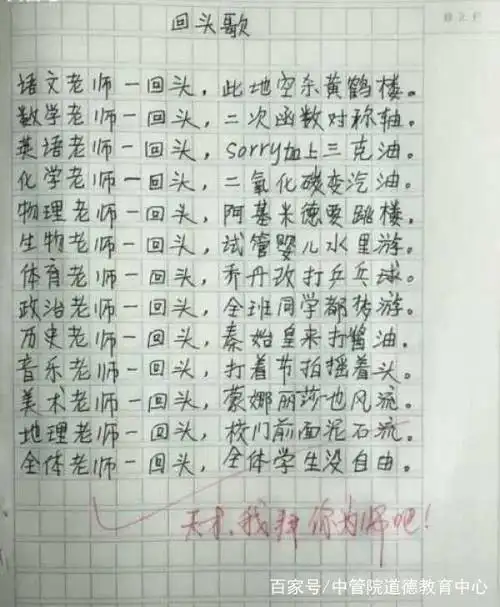 回头歌
语文老师一回头，此地空余黄鹤楼。
数学老师一回头，二次函数对称轴。
英语老师一回头，sorry加上三克油。
化学老师一回头，二氧化碳变汽油。
物理老师一回头，阿基米德要跳楼。
生物老师一回头，试管婴儿水里游。
体育老师一回头，乔丹改打乒乓球。
政治老师一回头，全班同学都梦游。
历史老师一回头，秦始皇来打酱油。
音乐老师一回头，打着节拍摇着头。
美术老师一回头，蒙娜丽莎也风流。
地理老师一回头，校门前面泥石流。
全体老师一回头，全体学生没自由。
天才，我拜你为师吧！
百家号/中管院道德教育中心